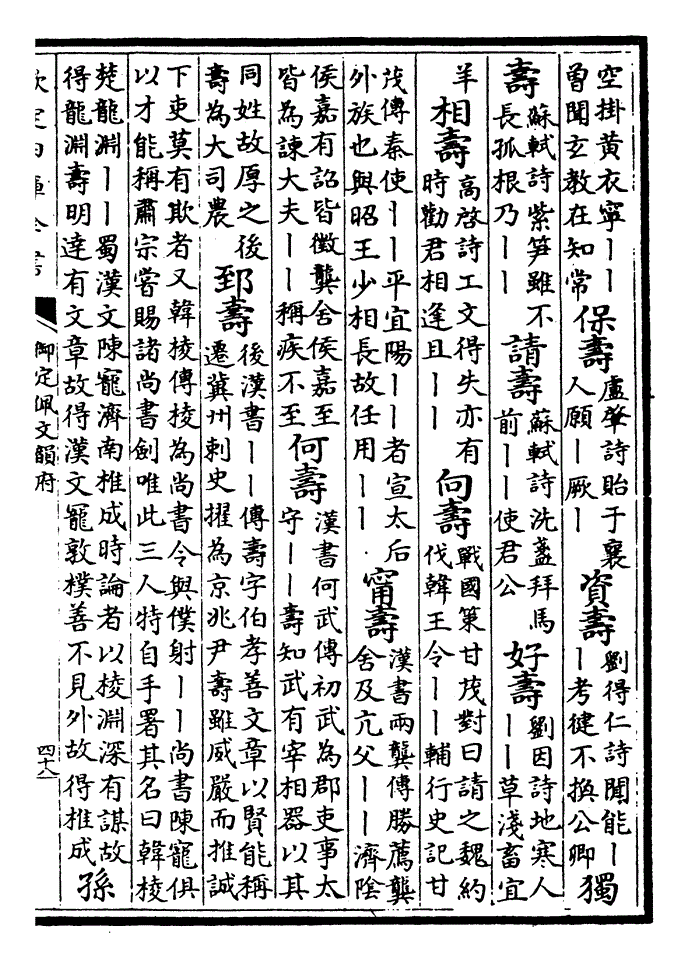 空掛黃衣寧丨丨
曾聞玄教在知常
保壽
盧肇詩貽于襄
人願丨厥丨
資壽
劉得仁詩聞能丨
丨考揵不換公卿
獨
壽
蘇軾詩紫笋雖不
長孤根乃丨丨
請壽
蘇軾詩洗盞拜馬
前丨丨使君公
好壽
劉因詩地寒人
丨丨草淺畜宜
羊
相壽
高啓詩工文得失亦有
時勸君相逢且丨丨
向壽
戰國策甘茂對曰請之魏約
伐韓王令丨丨輔行史記甘
茂傳秦使丨丨平宜陽丨丨者宣太后
外族也與昭王少相長故任用丨丨
甯壽
漢書兩龔傳勝薦龔
舍及亢父丨丨濟陰
侯嘉有詔皆徵龔舍侯嘉至
皆為諫大夫丨丨稱疾不至
何壽
漢書何武傳初武為郡吏事太
守丨丨壽知武有宰相器以其
同姓故厚之後
壽為大司農
郅壽
後漢書丨丨傳壽字伯孝善文章以賢能稱
遷冀州刺史擢為京兆尹壽雖威嚴而推誠
下吏莫有欺者又韓棱傳棱為尚書令與僕射丨丨尚書陳寵俱
以才能稱肅宗嘗賜諸尚書劍唯此三人特自手署其名曰韓棱
楚龍淵丨丨蜀漢文陳寵濟南椎成時論者以棱淵深有謀故
得龍淵壽明達有文章故得漢文寵敦樸善不見外故得椎成
孫
欽定四庫全書
御定佩文韻府
四十八